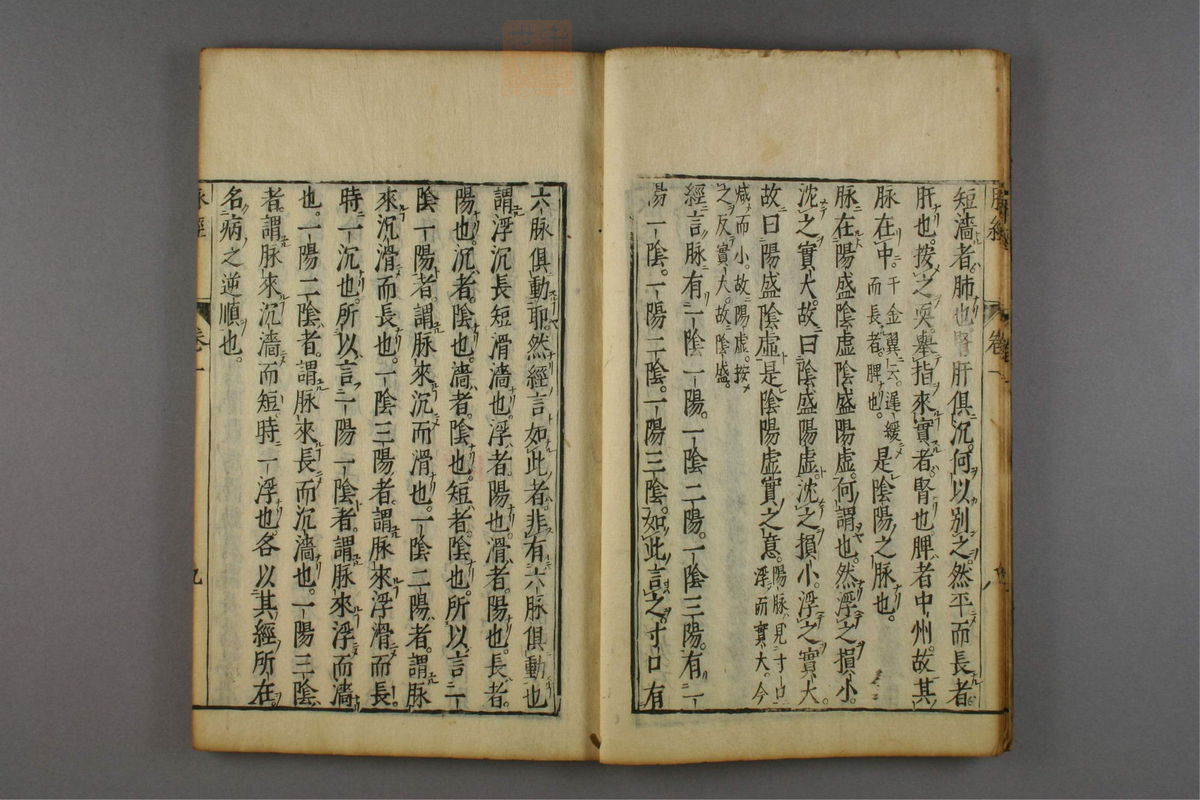 短濇者肺也腎肝俱沉何以別之然平而長者
肝也按之耎擧指來實者腎也脾者中州故其
脉在中千金翼云遲緩而長者脾也是陰陽之脉也
脉在陽盛陰虛陰盛陽虛何謂也然浮之損小
沈之實大故曰陰盛陽虛沈之損小浮之實大
故曰陽盛陰虛是陰陽虛實之意陽脉見寸口浮而實大今
減而小故陽虛按之反實大故陰盛
經言脉有一陰一陽一陰二陽一陰三陽有一
陽一陰一陽二陰一陽三陰如此言之寸口有
脉經 卷一
六脉俱動耶然經言如此者非有六脉俱動也
謂浮沉長短滑濇也浮者陽也滑者陽也長者
陽也沉者陰也濇者陰也短者陰也所以言一
陰一陽者謂脉來沉而滑也一陰二陽者謂脉
來沉滑而長也一陰三陽者謂脉來浮滑而長
時一沉也所以言一陽一陰者謂脉來浮而濇
也一陽二陰者謂脉來長而沉濇也一陽三陰
者謂脉來沉濇而短時一浮也各以其經所在
名病之逆順也
脉經 卷一 九